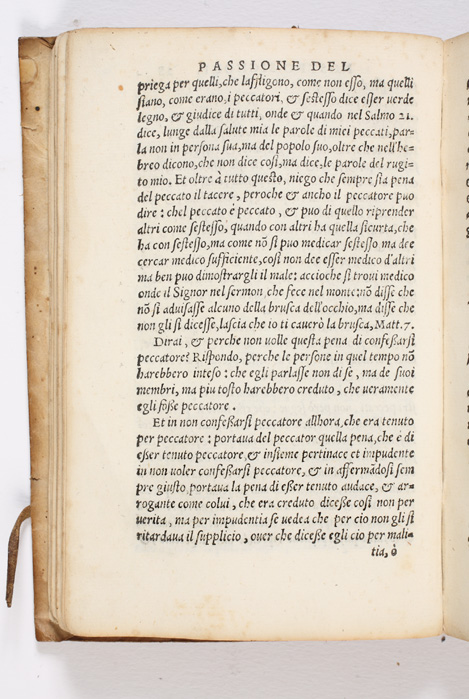 PASSIONE DEL
priega per quelli, che laffligono, come non esso, ma quelli
siano, come erano, i peccatori, & sestesso dice esser uerde
legno, & giudice di tutti, onde & quando nel Salmo 21.
dice, lunge dalla salute mia le parole di miei peccati, par-
la non in persona sua, ma del popolo suo, oltre che nell'he-
breo dicono, che non dice cosi, ma dice, le parole del rugi-
to mio. Et oltre à tutto questo, niego che sempre sia pena
del peccato il tacere, peroche & ancho il peccatore puo
dire: chel peccato è peccato, & puo di quello riprender
altri come sestesso, quando con altri ha quella sicurta, che
ha con sestesso, ma come nõ si puo medicar sestesso ma dee
cercar medico sufficiente, così non dee esser medico d'altri
ma ben puo dimostrargli il male: accioche si troui medico
onde il Signor nel sermon che fece nel monte: nõ disse che
nõ si aduisasse alcuno della brusca dell'occhio, ma disse che
non gli si dicesse, lascia che io ti cauerò la brusca, Matt. 7.
Dirai, & perche non uolle questa pena di confessarsi
peccatore? Rispondo, perche le persone in quel tempo nõ
harebbero inteso: che egli parlasse non di se, ma de suoi
membri, ma piu tosto harebbero creduto, che ueramente
egli fosse peccatore.
Et in non confessarsi peccatore allhora, che era tenuto
per peccatore: portaua del peccator quella pena, che è di
esser tenuto peccatore, & insieme pertinace et impudente
in non uoler confessarsi peccatore, & in affermãdosi sem
pre giusto, portaua la pena di esser tenuto audace, & ar-
rogante come colui, che era creduto dicesse così non per
uerita, ma per impudentia se uedea che per cio non gli si
ritardaua il supplicio, ouer che dicesse egli cio per mali-
tia, ò